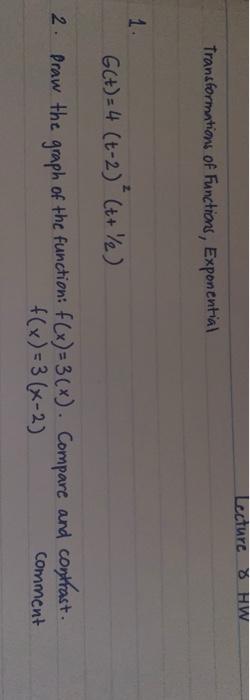 Lecture 8 HW
Transformations of Functions, Exponential
1.
G(t) = 4 (t-2)² (t+ 1/2)
2. Draw the graph of the function: f(x) = 3(x). Compare and contrast.
f(x) = 3(x-2) Comment